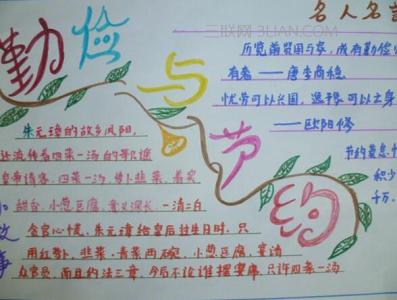 勤俭与节约
三联网 3LIAN.COM
名人名言
历览前贤国与家,成有勤俭
有奢 —— 唐·李商隐
忧劳可以兴国,逸豫可以亡身
—— 欧阳修
节约莫怠
积少
千万。
朱元璋的故乡凤阳,
还流传着四菜一汤的歌谣
皇帝请客,四菜一汤,萝卜韭菜,着实
甜香,小葱豆腐,意义深长,一清二白
贪官心慌。朱元璋给皇后过生日时,只
用红萝卜、韭菜,青菜两碗,小葱豆腐,宴请
众官员,而且约法三章,今后不论谁摆宴席,只许四菜一汤
小故事